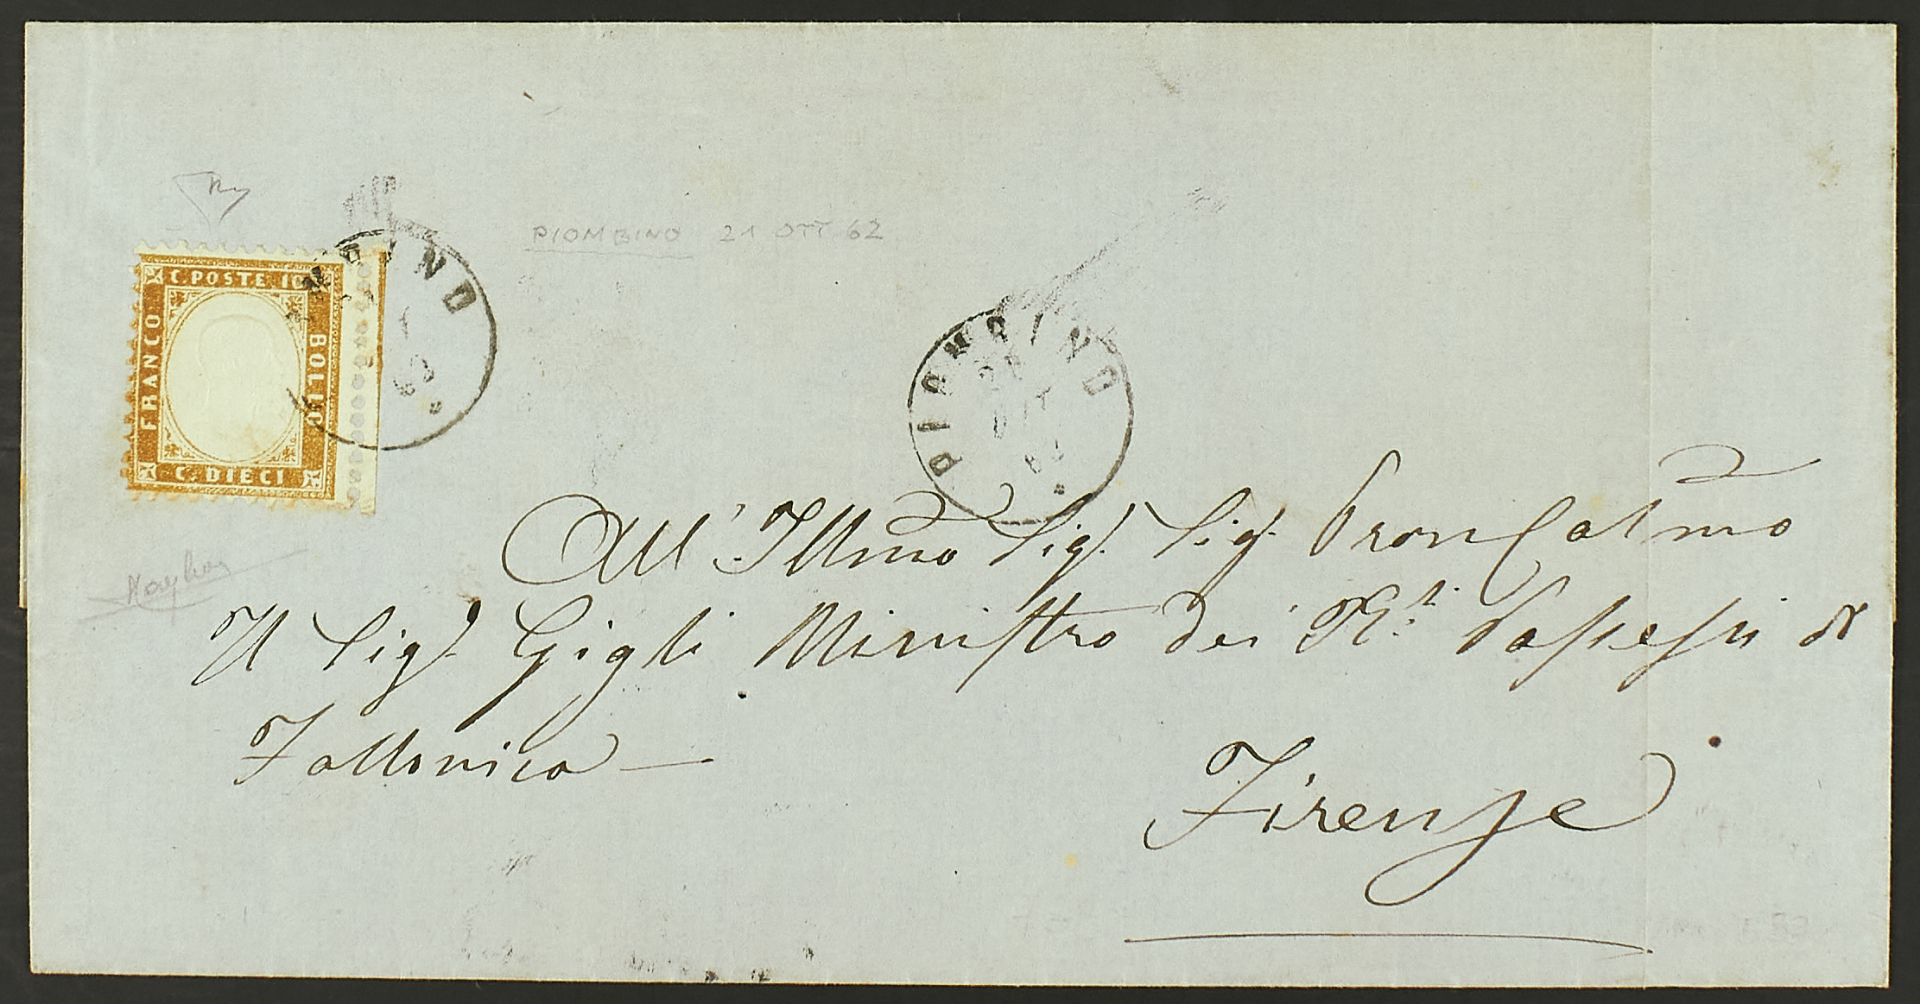 PIOMBINO 21 OTT 62
C. POSTE 10
FRANCO
BOLLO
C. DIECI
MBINO
62
PIOMBINO
OTT
62
All' Illmo Sig. Sig. Pron Colmo
Il Sig. Gigli Ministro dei Rli. Possessi di
Follonica
Firenze